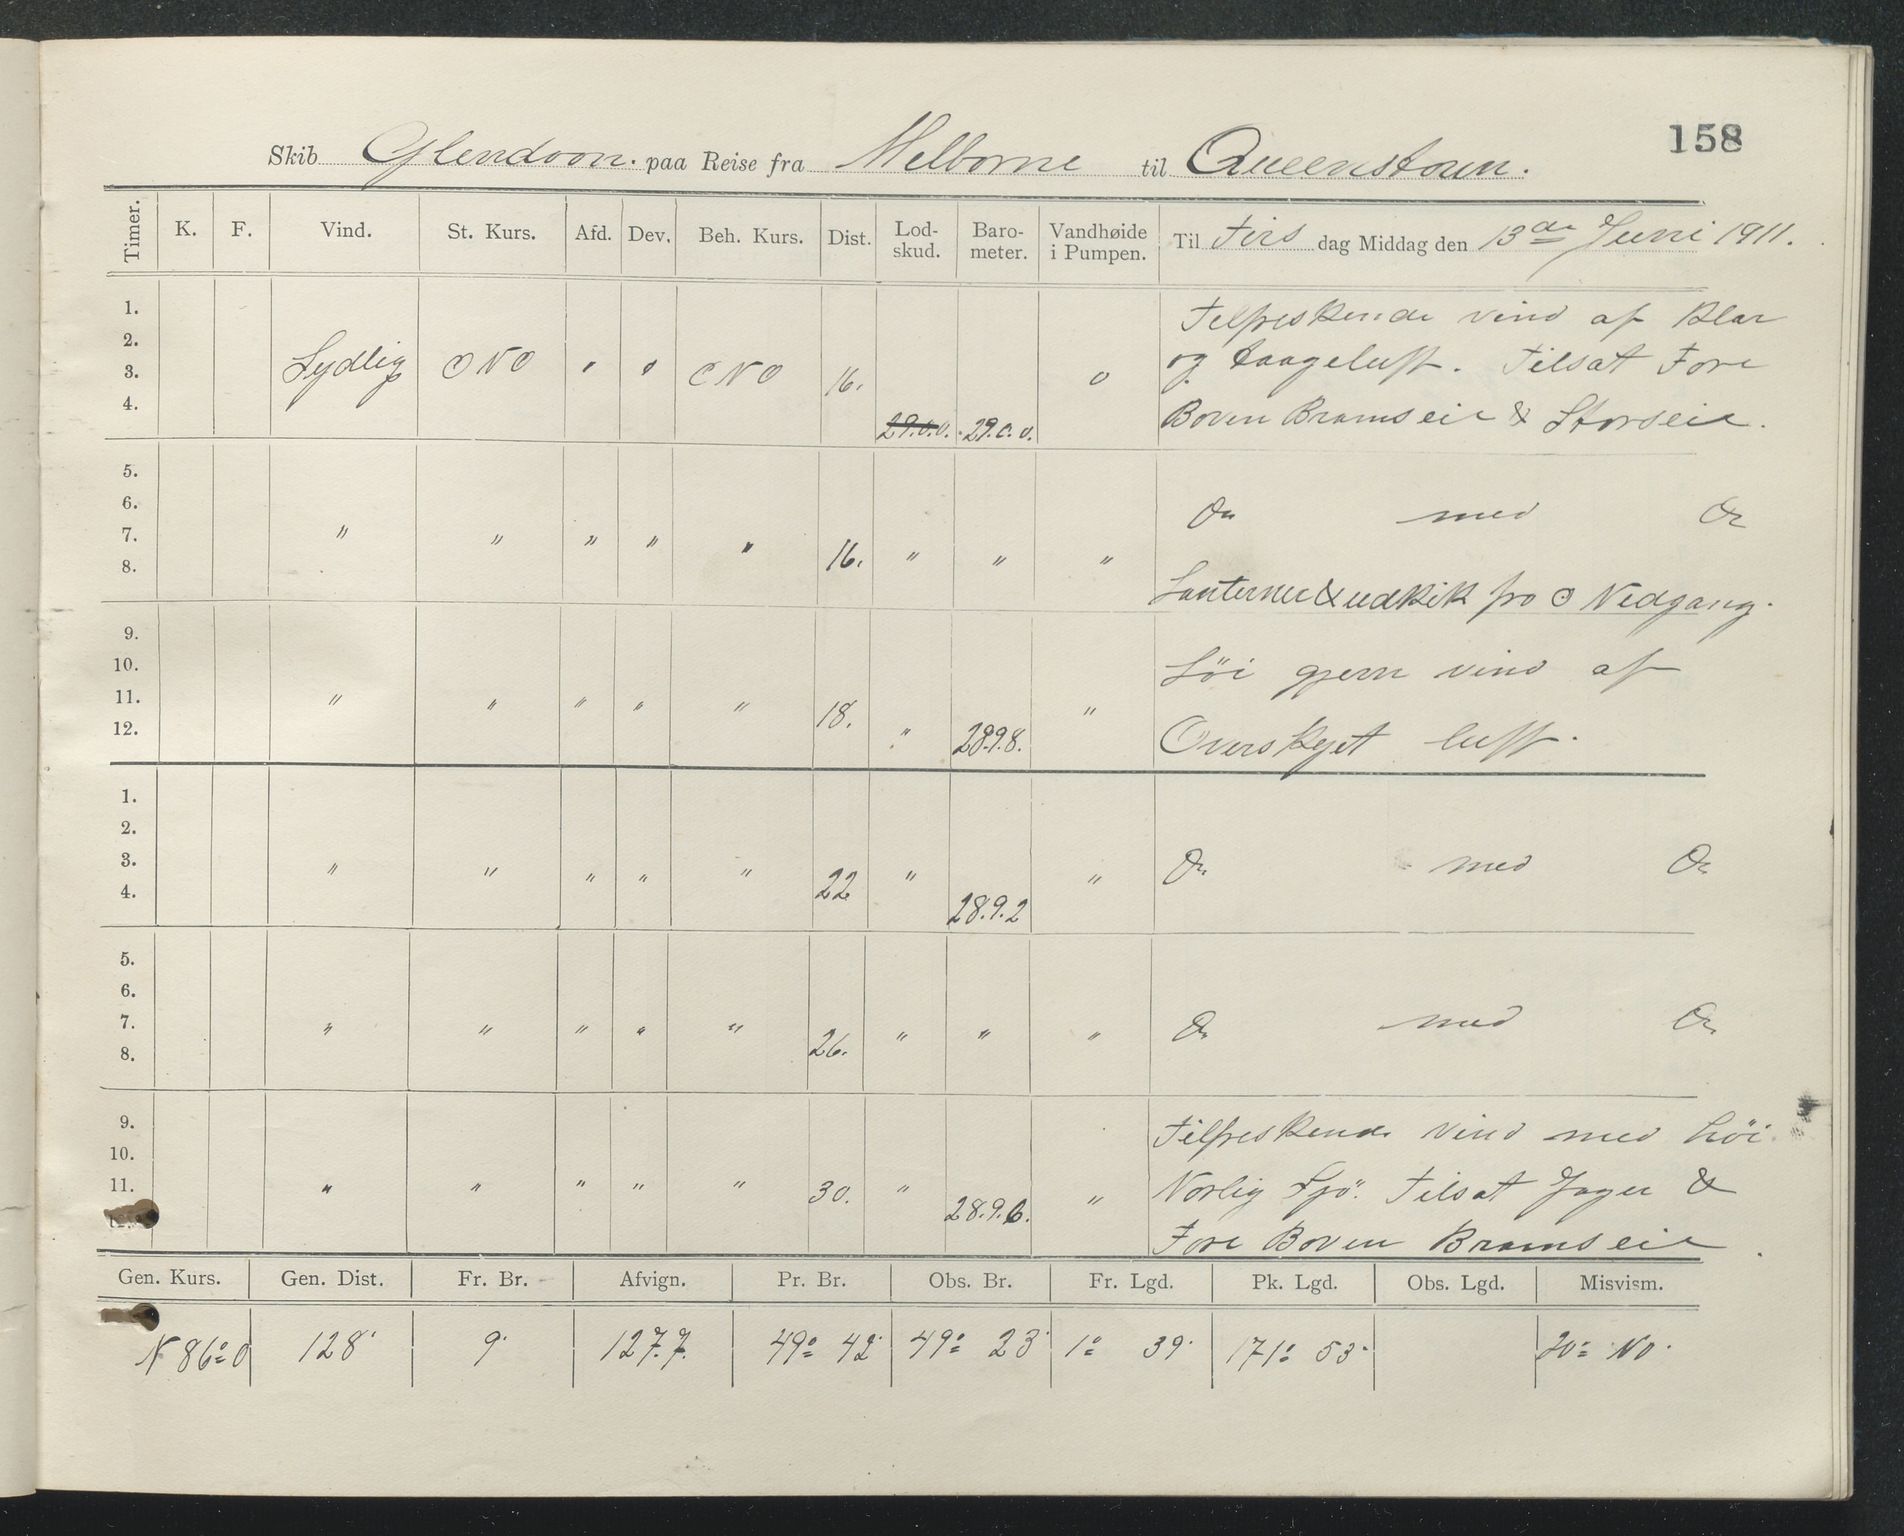 158
Skib Glendoon. paa Reise fra Melborne til Queenstoun.
Timer. K. F. Vind. St. Kurs. Afd. Dev. Beh. Kurs. Dist. Lod-skud. Baro-meter. Vandhøide i Pumpen. Til Tirs dag Middag den 13de Juni 1911.
1. Tilfriskende vind af Klar
2.
3. Sydlig ONO " " ONO 16. 0 og taageluft. Tilsat Fore
4. 29.0.0. 29.0.0. Boven Bramseil & Storseil.
5.
6. Do med Do
7. " " " " " 16. " " "
8. Lanterner & udkik fra ⊙ Nedgang.
9.
10. Löi gjern vind af
11. " " " " " 18. " "
12. 28.9.8. Overskyet luft.
1.
2.
3. " " " " " 22 " " Do med Do
4. 28.9.2
5.
6.
7. " " " " " 26. " " " Do med Do
8.
9. Tilfriskende vind med höi
10.
11. " " " " " 30. " " Norlig Sjö. Tilsat Jager &
12. 28.9.6. Fore Boven Bramseil
Gen. Kurs. Gen. Dist. Fr. Br. Afvign. Pr. Br. Obs. Br. Fr. Lgd. Pk. Lgd. Obs. Lgd. Misvism.
N 86° O 128' 9' 127.7. 49° 42' 49° 23' 1° 39' 171° 53' 20° NO.